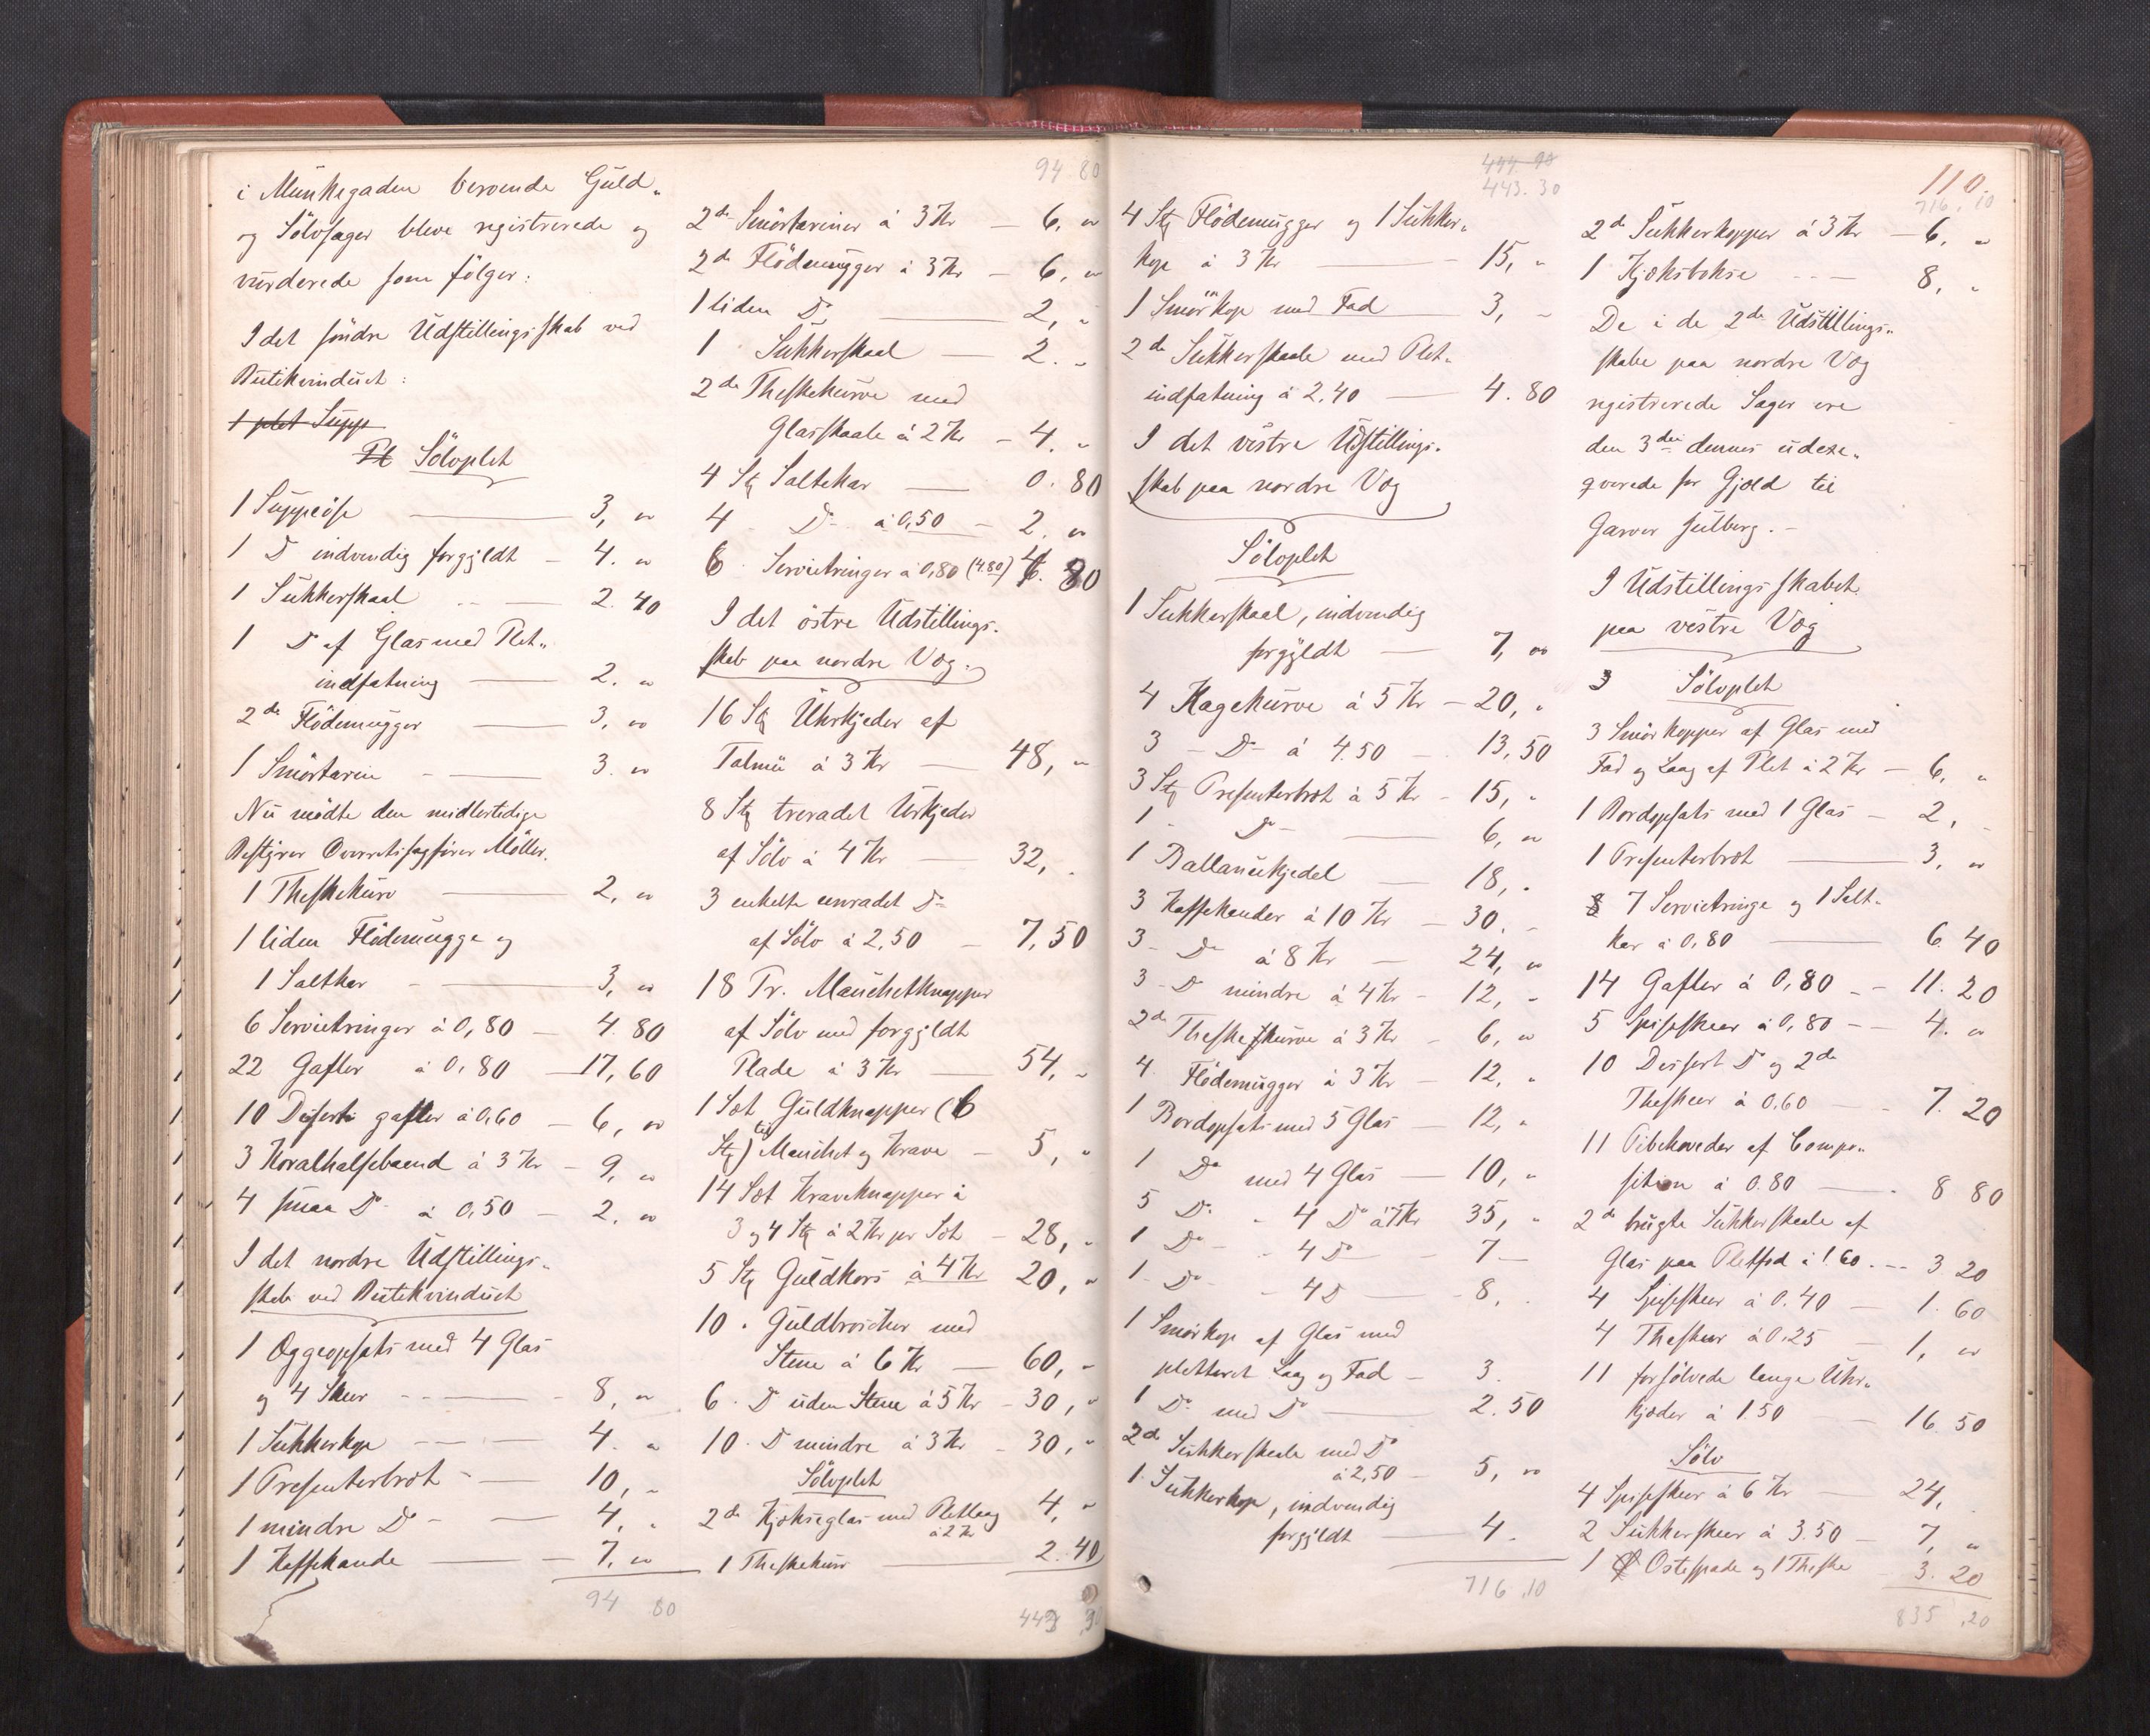 i Munkegaden beroende Guld-
og Sölvsager bleve registrerede og
vurderede som fölger:
I det söndre Udstillingsskab ved
Butikvinduet:
1 plet Supp
Pl Sölvplet
1 Suppeöse — 3, "
1 Do indvendig forgyldt — 4. "
1 Sukkerskaal — 2. 40
1 Do af Glas med Plet-
indfatning — 2. "
2de Flödemugger — 3, "
1 Smörtarin — 3. "
Nu mödte den midlertidige
Bestyrer Overretssagförer Möller.
1 Theskekurv — 2, "
1 liden Flödemugge og
1 Saltkar — 3, "
6 Servietringer à 0,80 — 4. 80
22 Gafler à 0,80 — 17,60
10 Desert gafler à 0,60 — 6, "
3 Koralhalsebaand à 3 Kr — 9, "
4 smaa Do à 0,50 — 2, "
I det nordre Udstillings-
skab ved Butikvinduet
1 Æggeopsats med 4 Glas
og 4 Skeer — 8, "
1 Sukkerkop — 4. "
1 Præsenterbræt — 10, "
1 mindre Do — 4, "
1 Kaffekande — 7, "
94 80
94 80
2de Smörtariner à 3 Kr — 6, "
2de Flödemugger à 3 Kr — 6, "
1 liden Do — 2, "
1 Sukkerskaal — 2. "
2de Theskekurve med
Glasskaale à 2 Kr — 4. "
4 Stk Saltekar — 0. 80
4 Do à 0,50 — 2. "
6 Servietringer à 0,80 (4.80) 4. 80
I det östre Udstillings-
skab paa nordre Væg.
16 Stk Uhrkjeder af
Talmi à 3 Kr — 48, "
8 Stk treradet Urkjeder
af Sölv à 4 Kr — 32, "
3 enkelte enradet Do
af Sölv à 2,50 — 7,50
18 Pr. Manchetknapper
af Sölv med forgyldt
Plade à 3 Kr — 54, "
1 Sæt Guldknapper (6
Stk) til Manchet og Krave — 5, "
14 Sæt Kraveknapper à
3 og 4 Stk à 2 Kr pr Sæt — 28, "
5 Stk Guldkors à 4 Kr 20, "
10 " Guldbroscher med
Stene à 6 Kr — 60, "
6 " Do uden Stene à 5 Kr — 30, "
10 " Do mindre à 3 Kr — 30, "
Sölvplet
2de Kjækseglas med Pletlaag 4, "
à 2 Kr
1 Theskekurv — 2. 40
443
443. 30
4 Stk Flödemugger og 1 Sukker-
kop à 3 Kr — 15, "
1 Smörkop med Fad — 3, "
2de Sukkerskaale med Plet-
indfatning à 2,40 — 4. 80
I det vestre Udstillings-
skab paa nordre Væg
Sölvplet
1 Sukkerskaal, indvendig
forgyldt — 7, "
4 Kagekurve à 5 Kr — 20, "
3 — Do à 4.50 — 13,50
3 Stk Præsenterbræt à 5 Kr — 15, "
1 Do — 6, "
1 Ballancekjedel — 18, "
3 Kaffekander à 10 Kr — 30. "
3 — Do à 8 Kr — 24, "
3 — Do mindre à 4 Kr — 12, "
2de Theskekurve à 3 Kr — 6, "
4 Flödemugger à 3 Kr — 12, "
1 Bordopsats med 5 Glas — 12, "
1 Do med 4 Glas — 10, "
5 Do " 4 Do à 7 Kr 35, "
1 Do " 4 Do — 7 —
1 Do " 4 Do — 8, "
1 Smörkop af Glas med
pletteret Laag og Fad — 3.
1 Do med Do — 2.50
2de Sukkerskaale med Do
à 2,50 — 5, "
1 Sukkerkop, indvendig
forgyldt — 4. "
716.10
110.
716,10
2de Sukkerkopper à 3 Kr — 6, "
1 Kjæksbokse — 8, "
De i de 2de Udstillings-
skabe paa nordre Væg
registrerede Sager ere
den 3die dennes udexe-
qverede for Gjæld til
Garver
I Udstillingsskabet
paa vestre Væg
3 Sölvplet
3 Smörkopper af Glas med
Fad og Laag af Plet à 2 Kr — 6, "
1 Bordopsats med 1 Glas — 2, "
1 Præsenterbræt — 3, "
8 7 Servietringe og 1 Salt-
kar à 0,80 — 6. 40
14 Gafler à 0,80 — 11. 20
5 Spiseskeer à 0,80 — 4. "
10 Dessert Do og 2de
Theskeer à 0.60 — 7. 20
11 Pibehoveder af Compo-
sition à 0.80 — 8 80
2de brugte Sukkerskaale af
Glas paa Pletfod à 1.60 — 3 20
4 Spiseskeer à 0.40 — 1. 60
4 Theskeer à 0.25 — 1, "
11 forsölvede lange Uhr-
kjæder à 1.50 — 16. 50
Sölv
4 Spiseskeer à 6 Kr — 24, "
2 Sukkerskeer à 3.50 — 7, "
1 Ostespade og 1 Theske 3. 20
835,20